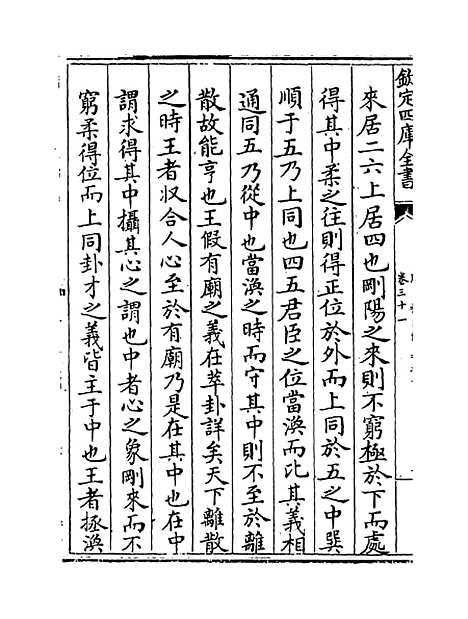 欽定四庫全書
卷三十一
來居二六上居四也剛陽之來則不窮極於下而處
得其中柔之往則得正位於外而上同於五之中巽
順于五乃上同也四五君臣之位當渙而比其義相
通同五乃從中也當渙之時而守其中則不至於離
散故能亨也王假有廟之義在萃卦詳矣天下離散
之時王者收合人心至於有廟乃是在其中也在中
謂求得其中攝其心之謂也中者心之象剛來而不
窮柔得位而上同卦才之義皆主于中也王者拯渙